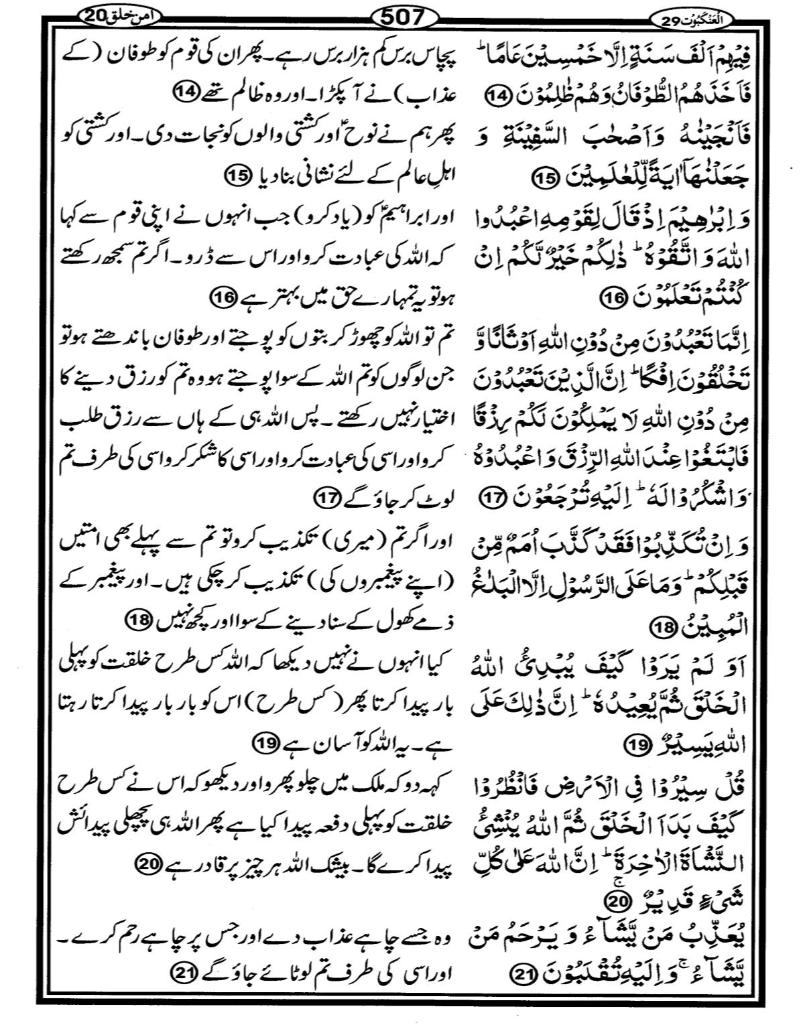 العنكبوت 29
507
امن خلق 20
فِيْهِمْ اَلْفَ سَنَةٍ اِلَّا خَمْسِيْنَ عَامًا ؕ
فَاَخَذَهُمُ الطُّوْفَانُ وَهُمْ ظٰلِمُوْنَ 14
فَاَنْجَيْنٰهُ وَاَصْحٰبَ السَّفِيْنَةِ وَ
جَعَلْنٰهَاۤ اٰيَةً لِّلْعٰلَمِيْنَ 15
وَاِبْرٰهِيْمَ اِذْ قَالَ لِقَوْمِهِ اعْبُدُوا
اللّٰهَ وَاتَّقُوْهُ ؕ ذٰلِكُمْ خَيْرٌ لَّكُمْ اِنْ
كُنْتُمْ تَعْلَمُوْنَ 16
اِنَّمَا تَعْبُدُوْنَ مِنْ دُوْنِ اللّٰهِ اَوْثَانًا وَّ
تَخْلُقُوْنَ اِفْكًا ؕ اِنَّ الَّذِيْنَ تَعْبُدُوْنَ
مِنْ دُوْنِ اللّٰهِ لَا يَمْلِكُوْنَ لَكُمْ رِزْقًا
فَابْتَغُوْا عِنْدَ اللّٰهِ الرِّزْقَ وَاعْبُدُوْهُ
وَاشْكُرُوْا لَهٗ ؕ اِلَيْهِ تُرْجَعُوْنَ 17
وَاِنْ تُكَذِّبُوْا فَقَدْ كَذَّبَ اُمَمٌ مِّنْ
قَبْلِكُمْ ؕ وَمَا عَلَى الرَّسُوْلِ اِلَّا الْبَلٰغُ
الْمُبِيْنُ 18
اَوَ لَمْ يَرَوْا كَيْفَ يُبْدِئُ اللّٰهُ
الْخَلْقَ ثُمَّ يُعِيْدُهٗ ؕ اِنَّ ذٰلِكَ عَلَى
اللّٰهِ يَسِيْرٌ 19
قُلْ سِيْرُوْا فِى الْاَرْضِ فَانْظُرُوْا
كَيْفَ بَدَاَ الْخَلْقَ ثُمَّ اللّٰهُ يُنْشِئُ
النَّشْاَةَ الْاٰخِرَةَ ؕ اِنَّ اللّٰهَ عَلٰى كُلِّ
شَىْءٍ قَدِيْرٌ ۚ 20
يُعَذِّبُ مَنْ يَّشَآءُ وَ يَرْحَمُ مَنْ
يَّشَآءُ ۚ وَاِلَيْهِ تُقْلَبُوْنَ 21
پچاس برس کم ہزار برس رہے۔ پھر ان کی قوم کو طوفان (کے
عذاب) نے آ پکڑا۔ اور وہ ظالم تھے 14
پھر ہم نے نوحؑ اور کشتی والوں کو نجات دی۔ اور کشتی کو
اہلِ عالم کے لئے نشانی بنا دیا 15
اور ابراہیمؑ کو (یاد کرو) جب انہوں نے اپنی قوم سے کہا
کہ اللہ کی عبادت کرو اور اس سے ڈرو۔ اگر تم سمجھ رکھتے
ہو تو یہ تمہارے حق میں بہتر ہے 16
تم تو اللہ کو چھوڑ کر بتوں کو پوجتے اور طوفان باندھتے ہو تو
جن لوگوں کو تم اللہ کے سوا پوجتے ہو وہ تم کو رزق دینے کا
اختیار نہیں رکھتے۔ پس اللہ ہی کے ہاں سے رزق طلب
کرو اور اسی کی عبادت کرو اور اسی کا شکر کرو اسی کی طرف تم
لوٹ کر جاؤ گے 17
اور اگر تم (میری) تکذیب کرو تو تم سے پہلے بھی امتیں
(اپنے پیغمبروں کی) تکذیب کر چکی ہیں۔ اور پیغمبر کے
ذمے کھول کے سنا دینے کے سوا اور کچھ نہیں 18
کیا انہوں نے نہیں دیکھا کہ اللہ کس طرح خلقت کو پہلی
بار پیدا کرتا پھر (کس طرح) اس کو بار بار پیدا کرتا رہتا
ہے۔ یہ اللہ کو آسان ہے 19
کہہ دو کہ ملک میں چلو پھرو اور دیکھو کہ اس نے کس طرح
خلقت کو پہلی دفعہ پیدا کیا ہے پھر اللہ ہی پچھلی پیدائش
پیدا کرے گا۔ بیشک اللہ ہر چیز پر قادر ہے 20
وہ جسے چاہے عذاب دے اور جس پر چاہے رحم کرے۔
اور اسی کی طرف تم لوٹائے جاؤ گے 21